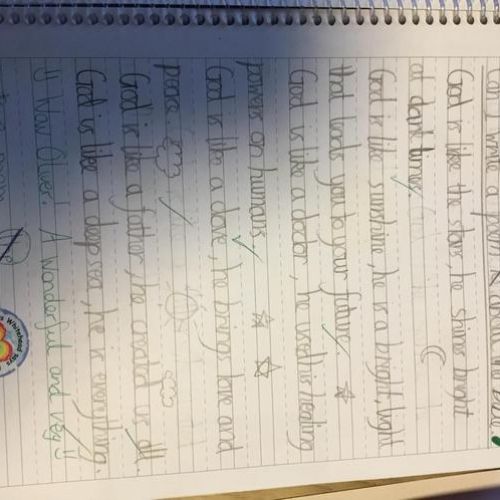 Can I write a poem
God is like the stars, he shines bright
at dark times
God is like sunshine, he is a bright light
that leads you to your future
God is like a doctor, he used his healing
powers on humans
God is like a dove, he brings love and
peace
God is like a father, he created us all.
God is like a deep sea, he is everything.
Wow Oliver! A wonderful and very